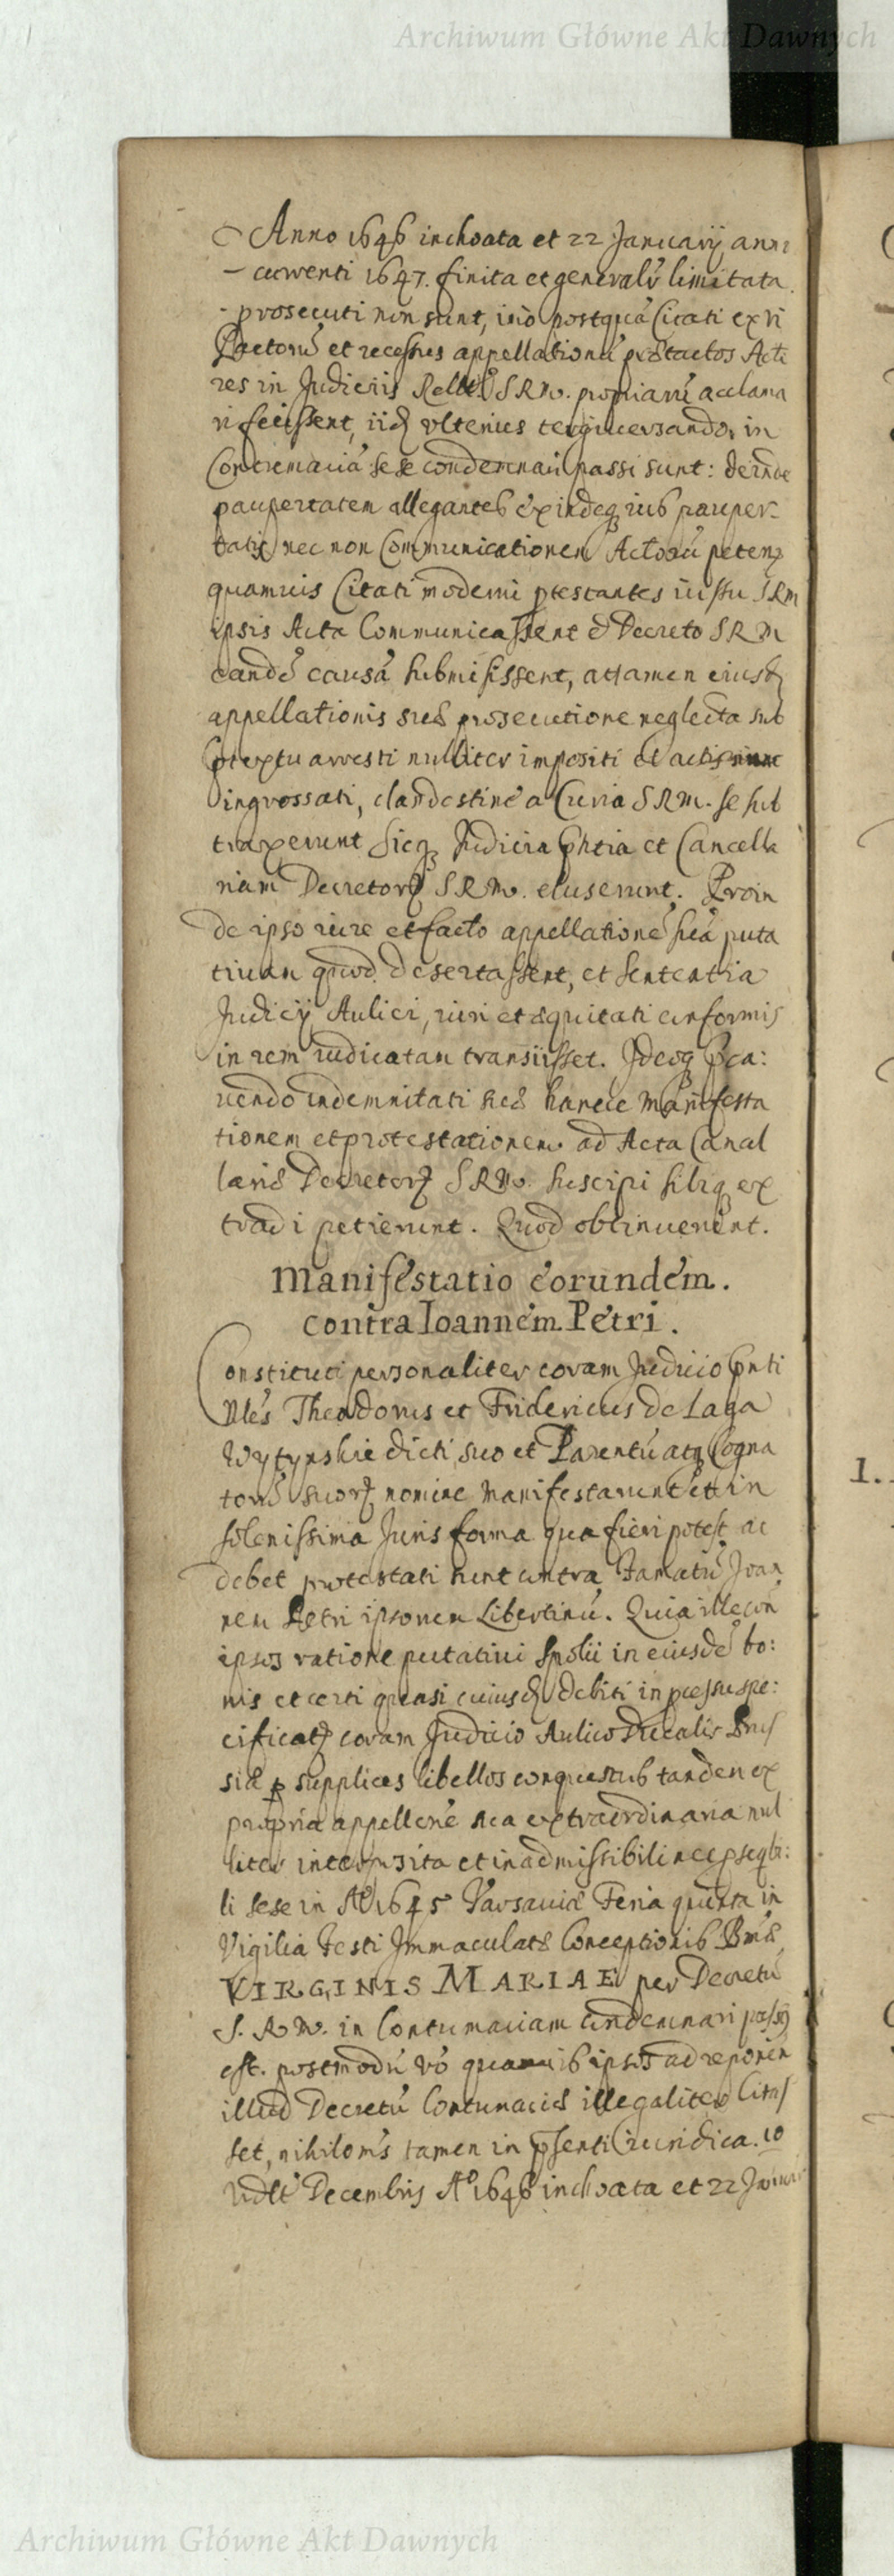 Archiwum Główne Akt Dawnych
Anno 1646 inchoata et 22 Januarij anni
currenti 1647. finita et generalr limitata
prosecuti non sunt, imo postquã Citati ex vi
et recessus appellationũ Acto
res in Judicijs S R M. acclama
ri fecissent, ulterius tergiuersando, in
Contumaciã sese condemnari passi sunt: deinde
paupertatem allegantes exindeq ius pauper-
tatis nec non Communicationem Actorũ petent
quamuis Citati moderni ptestantes iussu S R M
ipsis Acta Communicassent & Decreto S R M
eandẽ causã submisissent, attamen eiusd
appellationis suæ prosecutione neglecta sub
ptextu arresti nulliter impositi et actis
ingrossati, clandestine a Curia S R M. se sub
traxerunt Sicq Judicia pñtia et Cancella
riam Decretorũ S R M. eluserunt. Proin
de ipso iure et facto appellationẽ suã puta
tiuam quod desertassent, et sententia
Judicij Aulici, iuri et æquitati conformis
in rem iudicatam transiisset. Ideoq pca:
uendo indemnitati suæ hancce Manifesta
tionem et protestationem ad Acta Cancel
lariæ Decretorũ S R M. suscipi sibiq ex
tradi petierunt. Quod obtinuerunt.
Manifestatio eorundem.
contra Ioannem Petri.
Constituti personaliter coram Judicio pnti
Nles Theodorus et Fridericus de Laga
Wytynskie dicti, suo et Parentũ atq Cogna
torũ suorũ nomine manifestarunt et in
solenissima Juris forma qua fieri potest ac
debet protestati sunt contra Famatũ Joan
nem Petri ipsonem Libertinũ. Quia ille con
ipsos ratione putatiui Spolii in eiusdẽ bo:
nis et certi quasi cuiusd debiti in pcessu spe:
cificati coram Judicio Aulico Ducalis Prus
siæ p supplices libellos conquestus tandem ex
propria appellẽne sua extraordinaria nul
liter interposita et inadmissibili nec psequi:
li sese in Aõ 1645 Varsauiæ Feria quinta in
Vigilia Festi Immaculatæ Conceptionis Bmæ
VIRGINIS MARIAE per Decretũ
S. R M. in Contumaciam condemnari passus
est. postmodũ võ quamuis ipsos ad reponen
illud Decretũ Contumaciæ illegaliter Citas
set, nihilomꝰ tamen in psenti iuridica. 10
Decembris Aõ 1646 inchoata et 22 Januarij
1.
Archiwum Główne Akt Dawnych